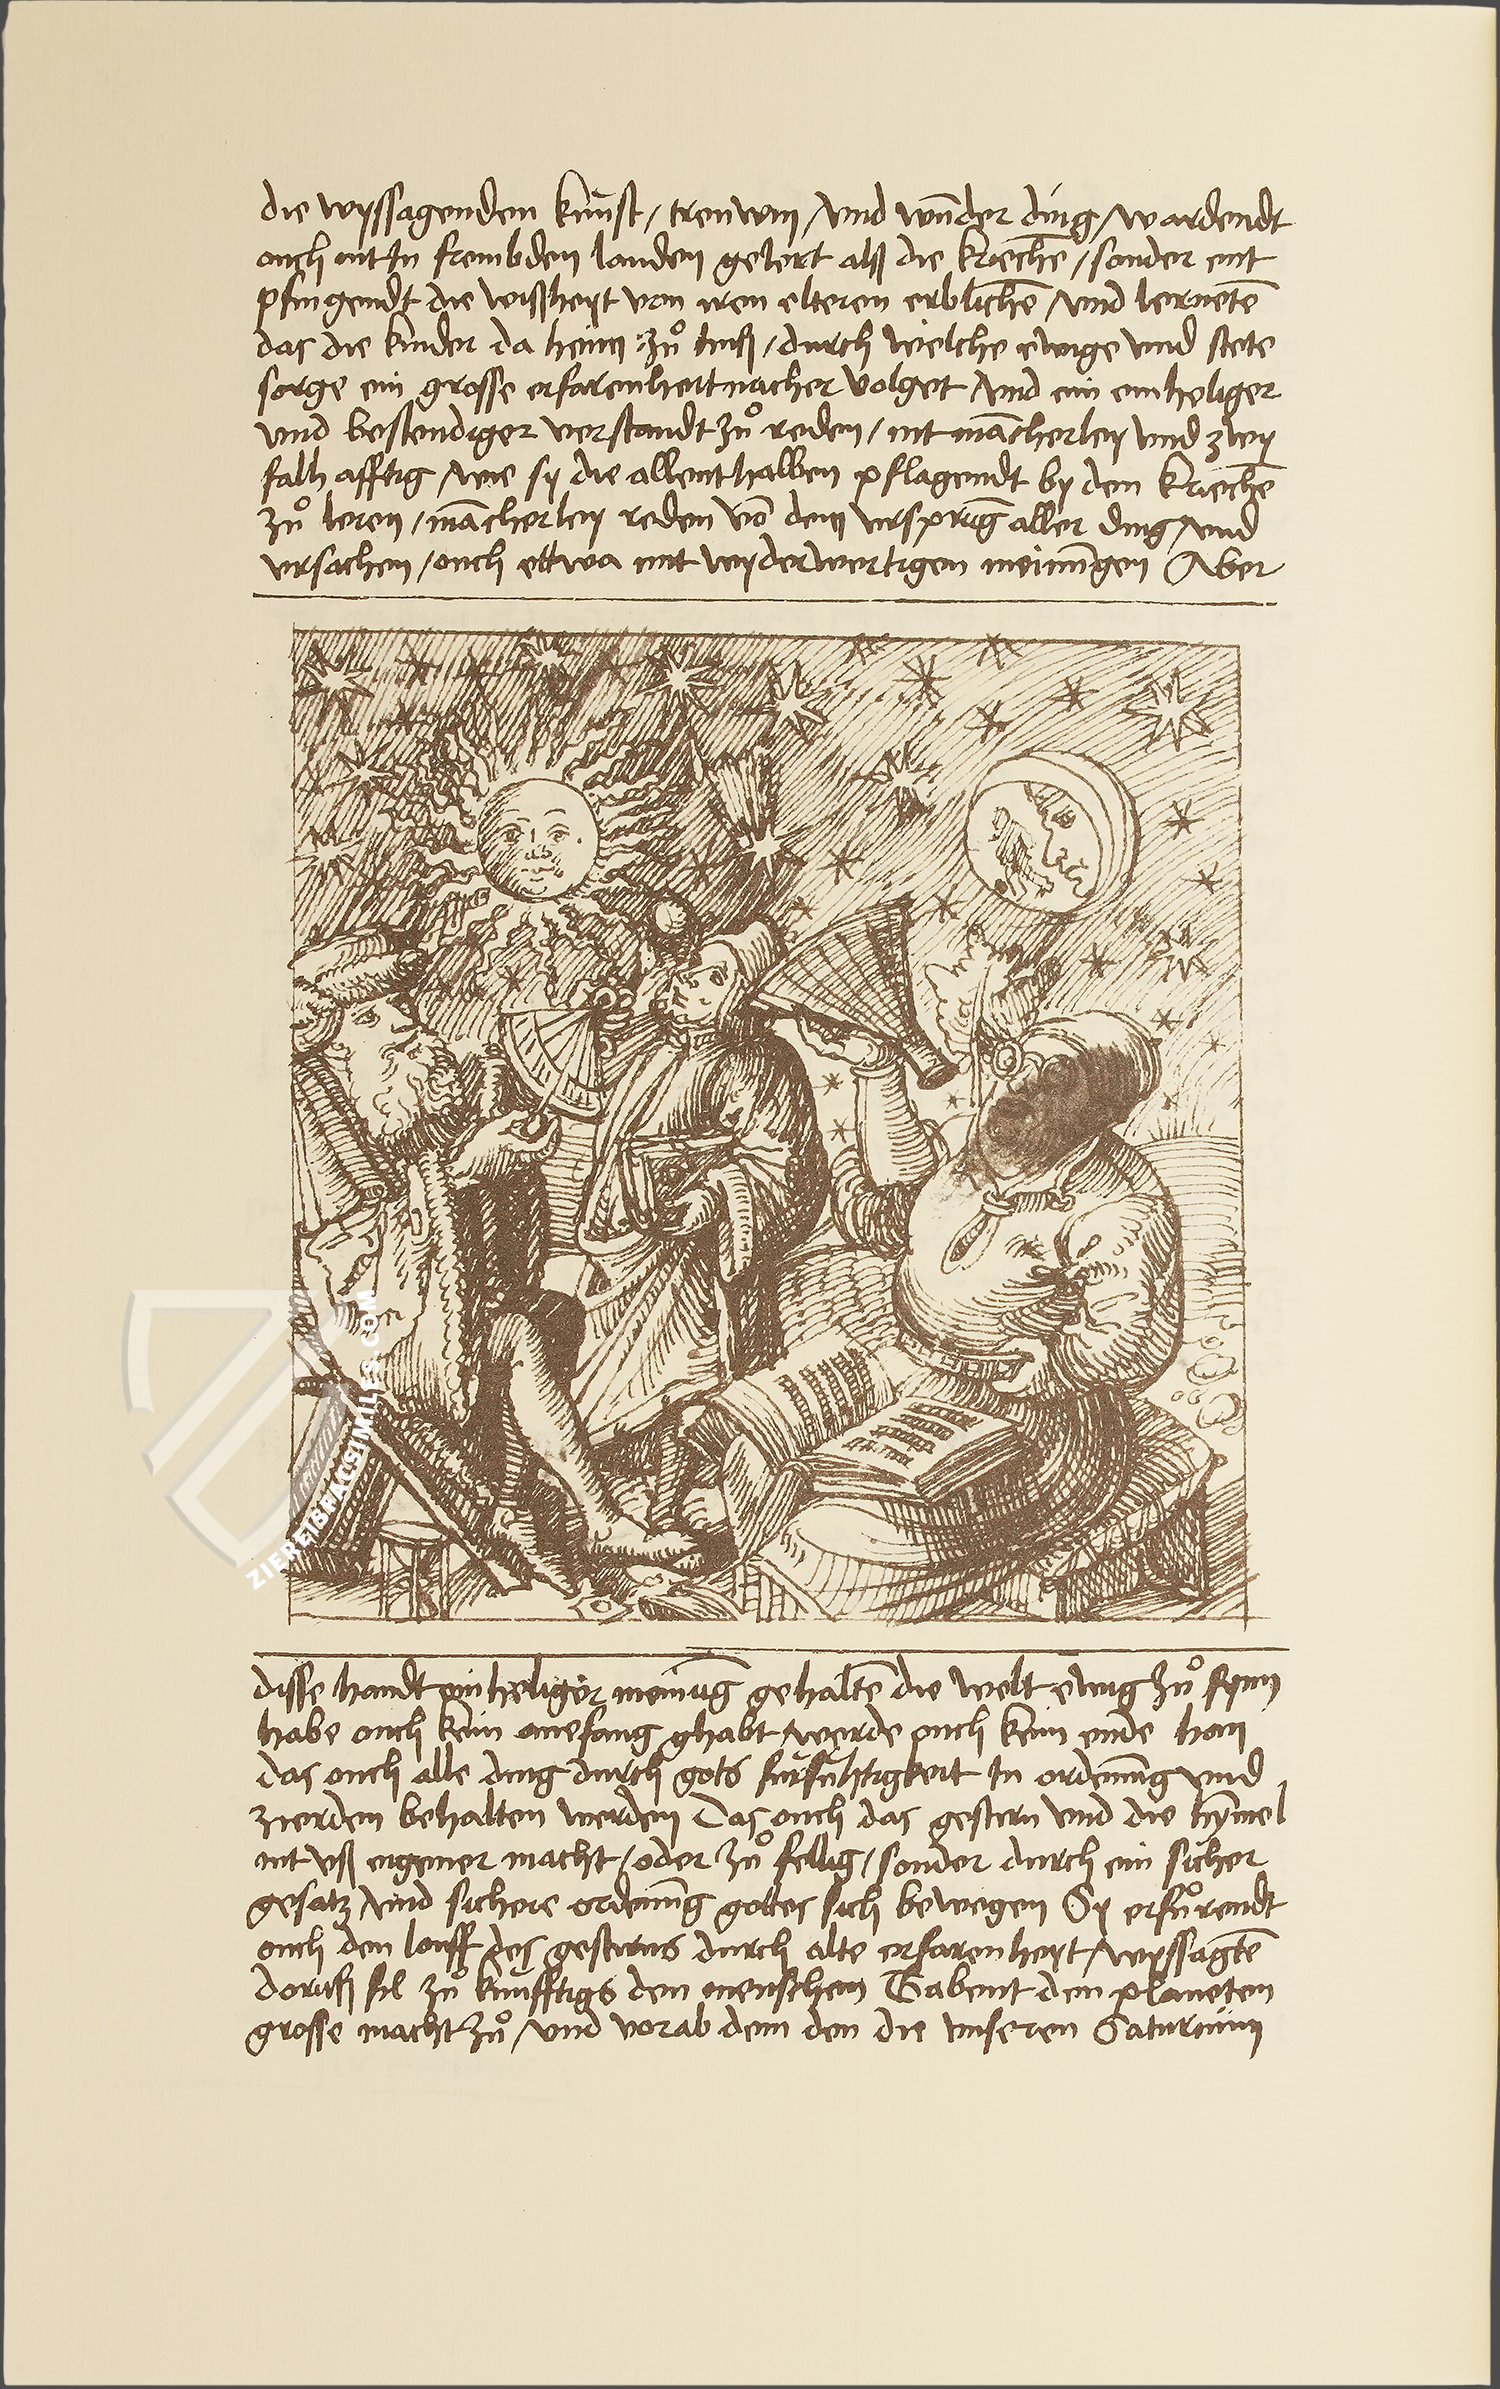 die wyssagenden kunst / treuwm / vnd wu̅der ding / wardendt
ouch nit in frembden landen gelert alß die krieche̅ / sonder ent
pfingendt die wißheyt von iren elteren erbliche̅ / vnd lernete̅
das die kinder da heim zů huß / durch wielche ewige vnd stete
sorge ein grosse erfarenheit nacher volget / vnd ein einheliger
vnd bestendiger verstandt zů reden / nit ma̅cherley vnd zwy
falh afftig / wie sy die allenthalben pflagendt by den krieche̅
zů leren / ma̅cherley reden vo̅ dem vrspru̅g aller ding / vnd
vrsachen / ouch ettwa mit wyderwertigen meinu̅gen Aber
disse handt einheliger meinu̅g gehalte̅ die welt ewig zů synn
habe ouch kein anefang ghabt / werde ouch kein ende han
das ouch alle ding durch gots fürsühtigkeit in ordenu̅g vnd
zierden behalten werden Das ouch das gestirn vnd die hy̅mel
nit vß eigener macht / oder zů fellig / sonder durch ein sicher
gesatz / vnd sichere ordenu̅g gottes sich bewegen Sy erfůrendt
ouch den louff des gestirns durch alte erfarenheyt / wyssagte̅
doruß fil zů künfftigs den menschen Gabent den planeten
grosse macht zů / vnd vorab dem den die vnseren Saturnum
ZIEREISFACSIMILES.COM